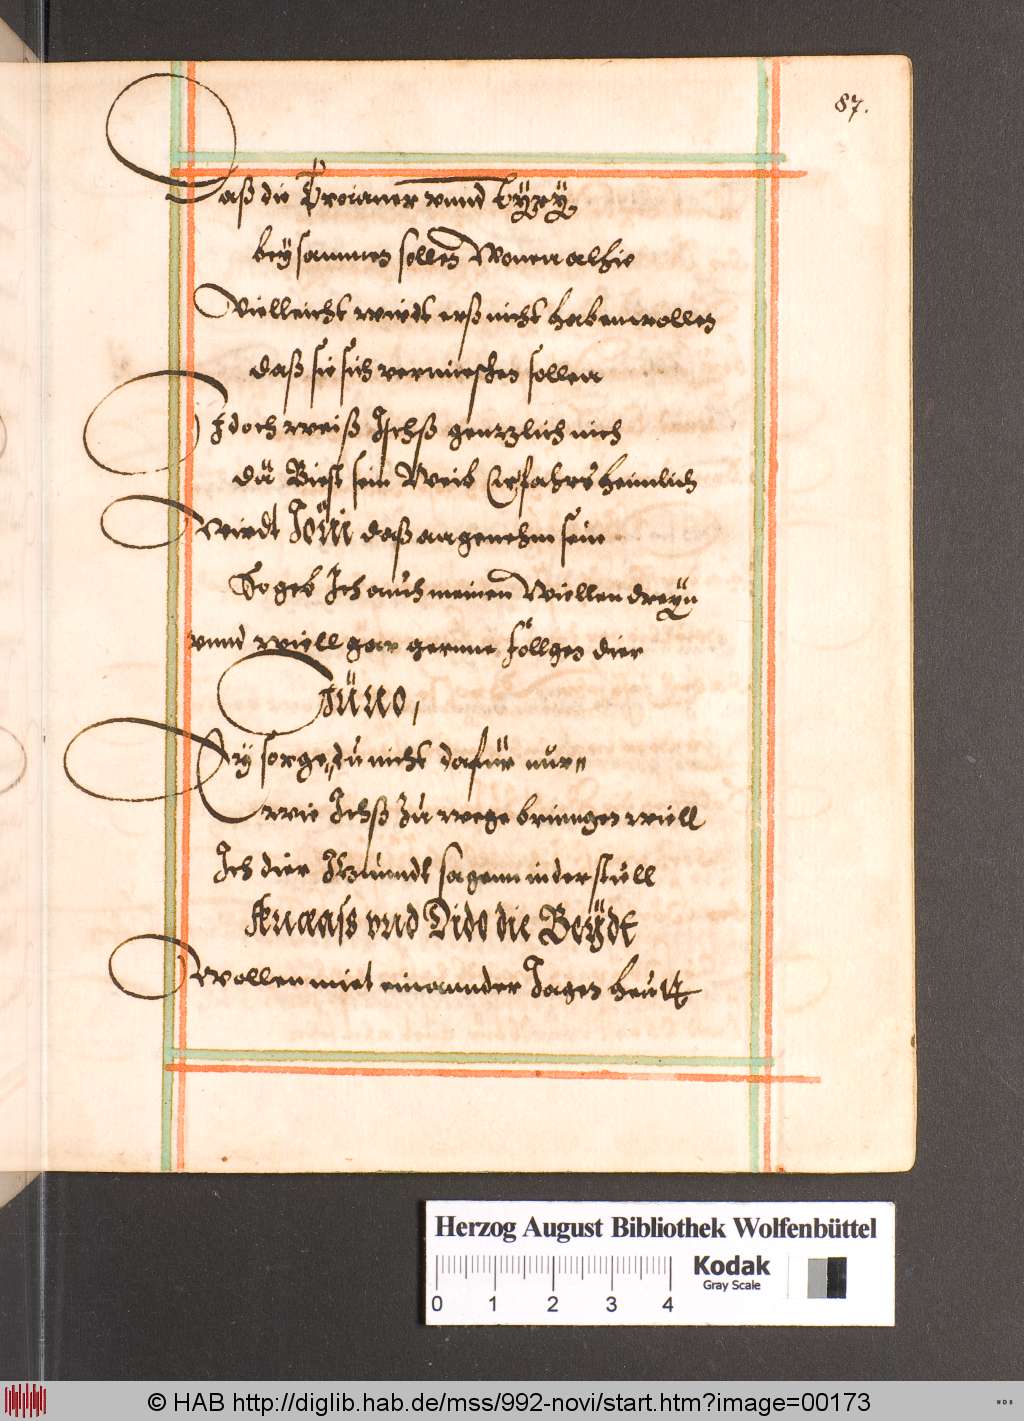 87.
Daß die Troianer vnnd Tÿrÿ
beÿsammen sollen Wonen alhie
Vielleicht wirdt erß nicht haben wollen
daß sie sich vermieschen sollen
Jdoch weiß Ichß genzlich nich
dü Biest sein Weib erfahrs heimlich
Wirdt Joui daß angenehm sein
So geb Ich auch meinen Wiellen dreÿn
vnnd wiell gar gernne follgen dier
Jüno,
Eÿ sorge dü nicht dafür nur
wie Ichß zü wege brinngen wiell
Ich dier Itzünndt sagenn in der stüll
Aeneass vnd Dido die Beÿdt
Wollen miet einannder Jagen heutt
Herzog August Bibliothek Wolfenbüttel
Kodak
Gray Scale
0 1 2 3 4
© HAB http://diglib.hab.de/mss/992-novi/start.htm?image=00173